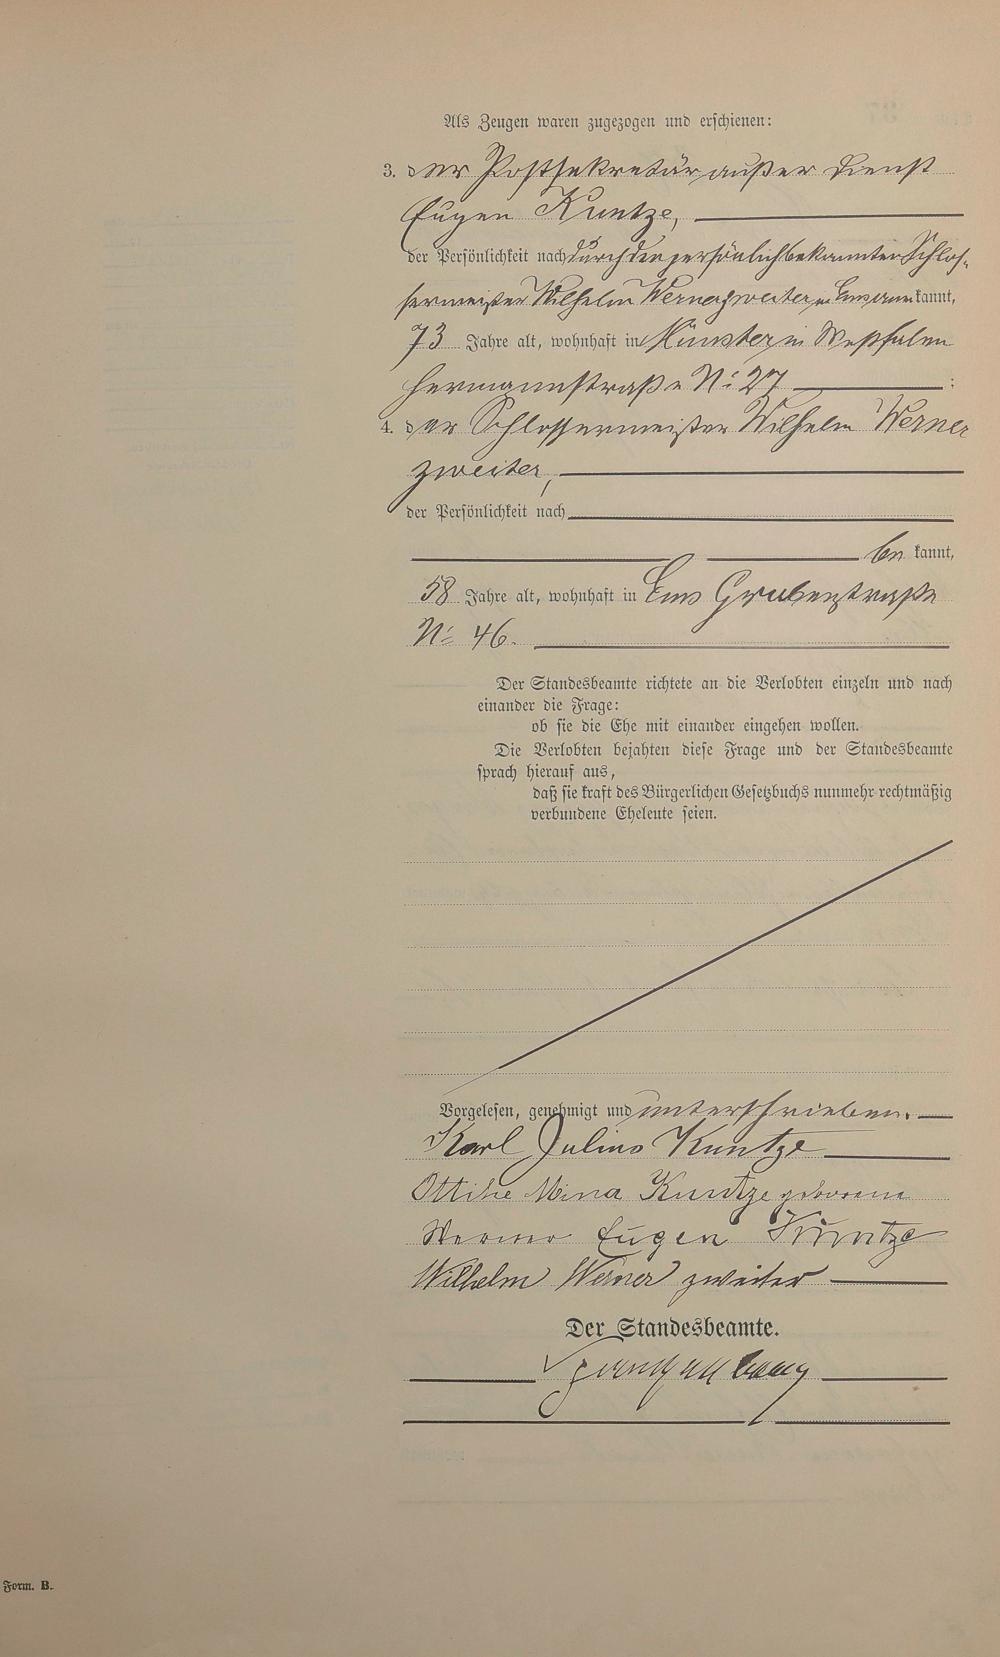 Als Zeugen waren zugezogen und erschienen:
3. der Postsekretär außer Dienst
Eugen Kuntze,
der Persönlichkeit nach durch den persönlich bekannten Schlos-
sermeister Wilhelm Werner zweiter in Ems anerkannt,
73 Jahre alt, wohnhaft in Münster in Westfalen
Hermannstraße No: 27 :
4. der Schlossermeister Wilhelm Werner
zweiter,
der Persönlichkeit nach
be kannt,
58 Jahre alt, wohnhaft in Ems Grabenstraße
No 46.
Der Standesbeamte richtete an die Verlobten einzeln und nach
einander die Frage:
ob sie die Ehe mit einander eingehen wollen.
Die Verlobten bejahten diese Frage und der Standesbeamte
sprach hierauf aus,
daß sie kraft des Bürgerlichen Gesetzbuchs nunmehr rechtmäßig
verbundene Eheleute seien.
Vorgelesen, genehmigt und unterschrieben.
Karl Julius Kuntze
Ottilie Mina Kuntze geborene
Werner Eugen Kuntze
Wilhelm Werner zweiter
Der Standesbeamte.
Form. B.